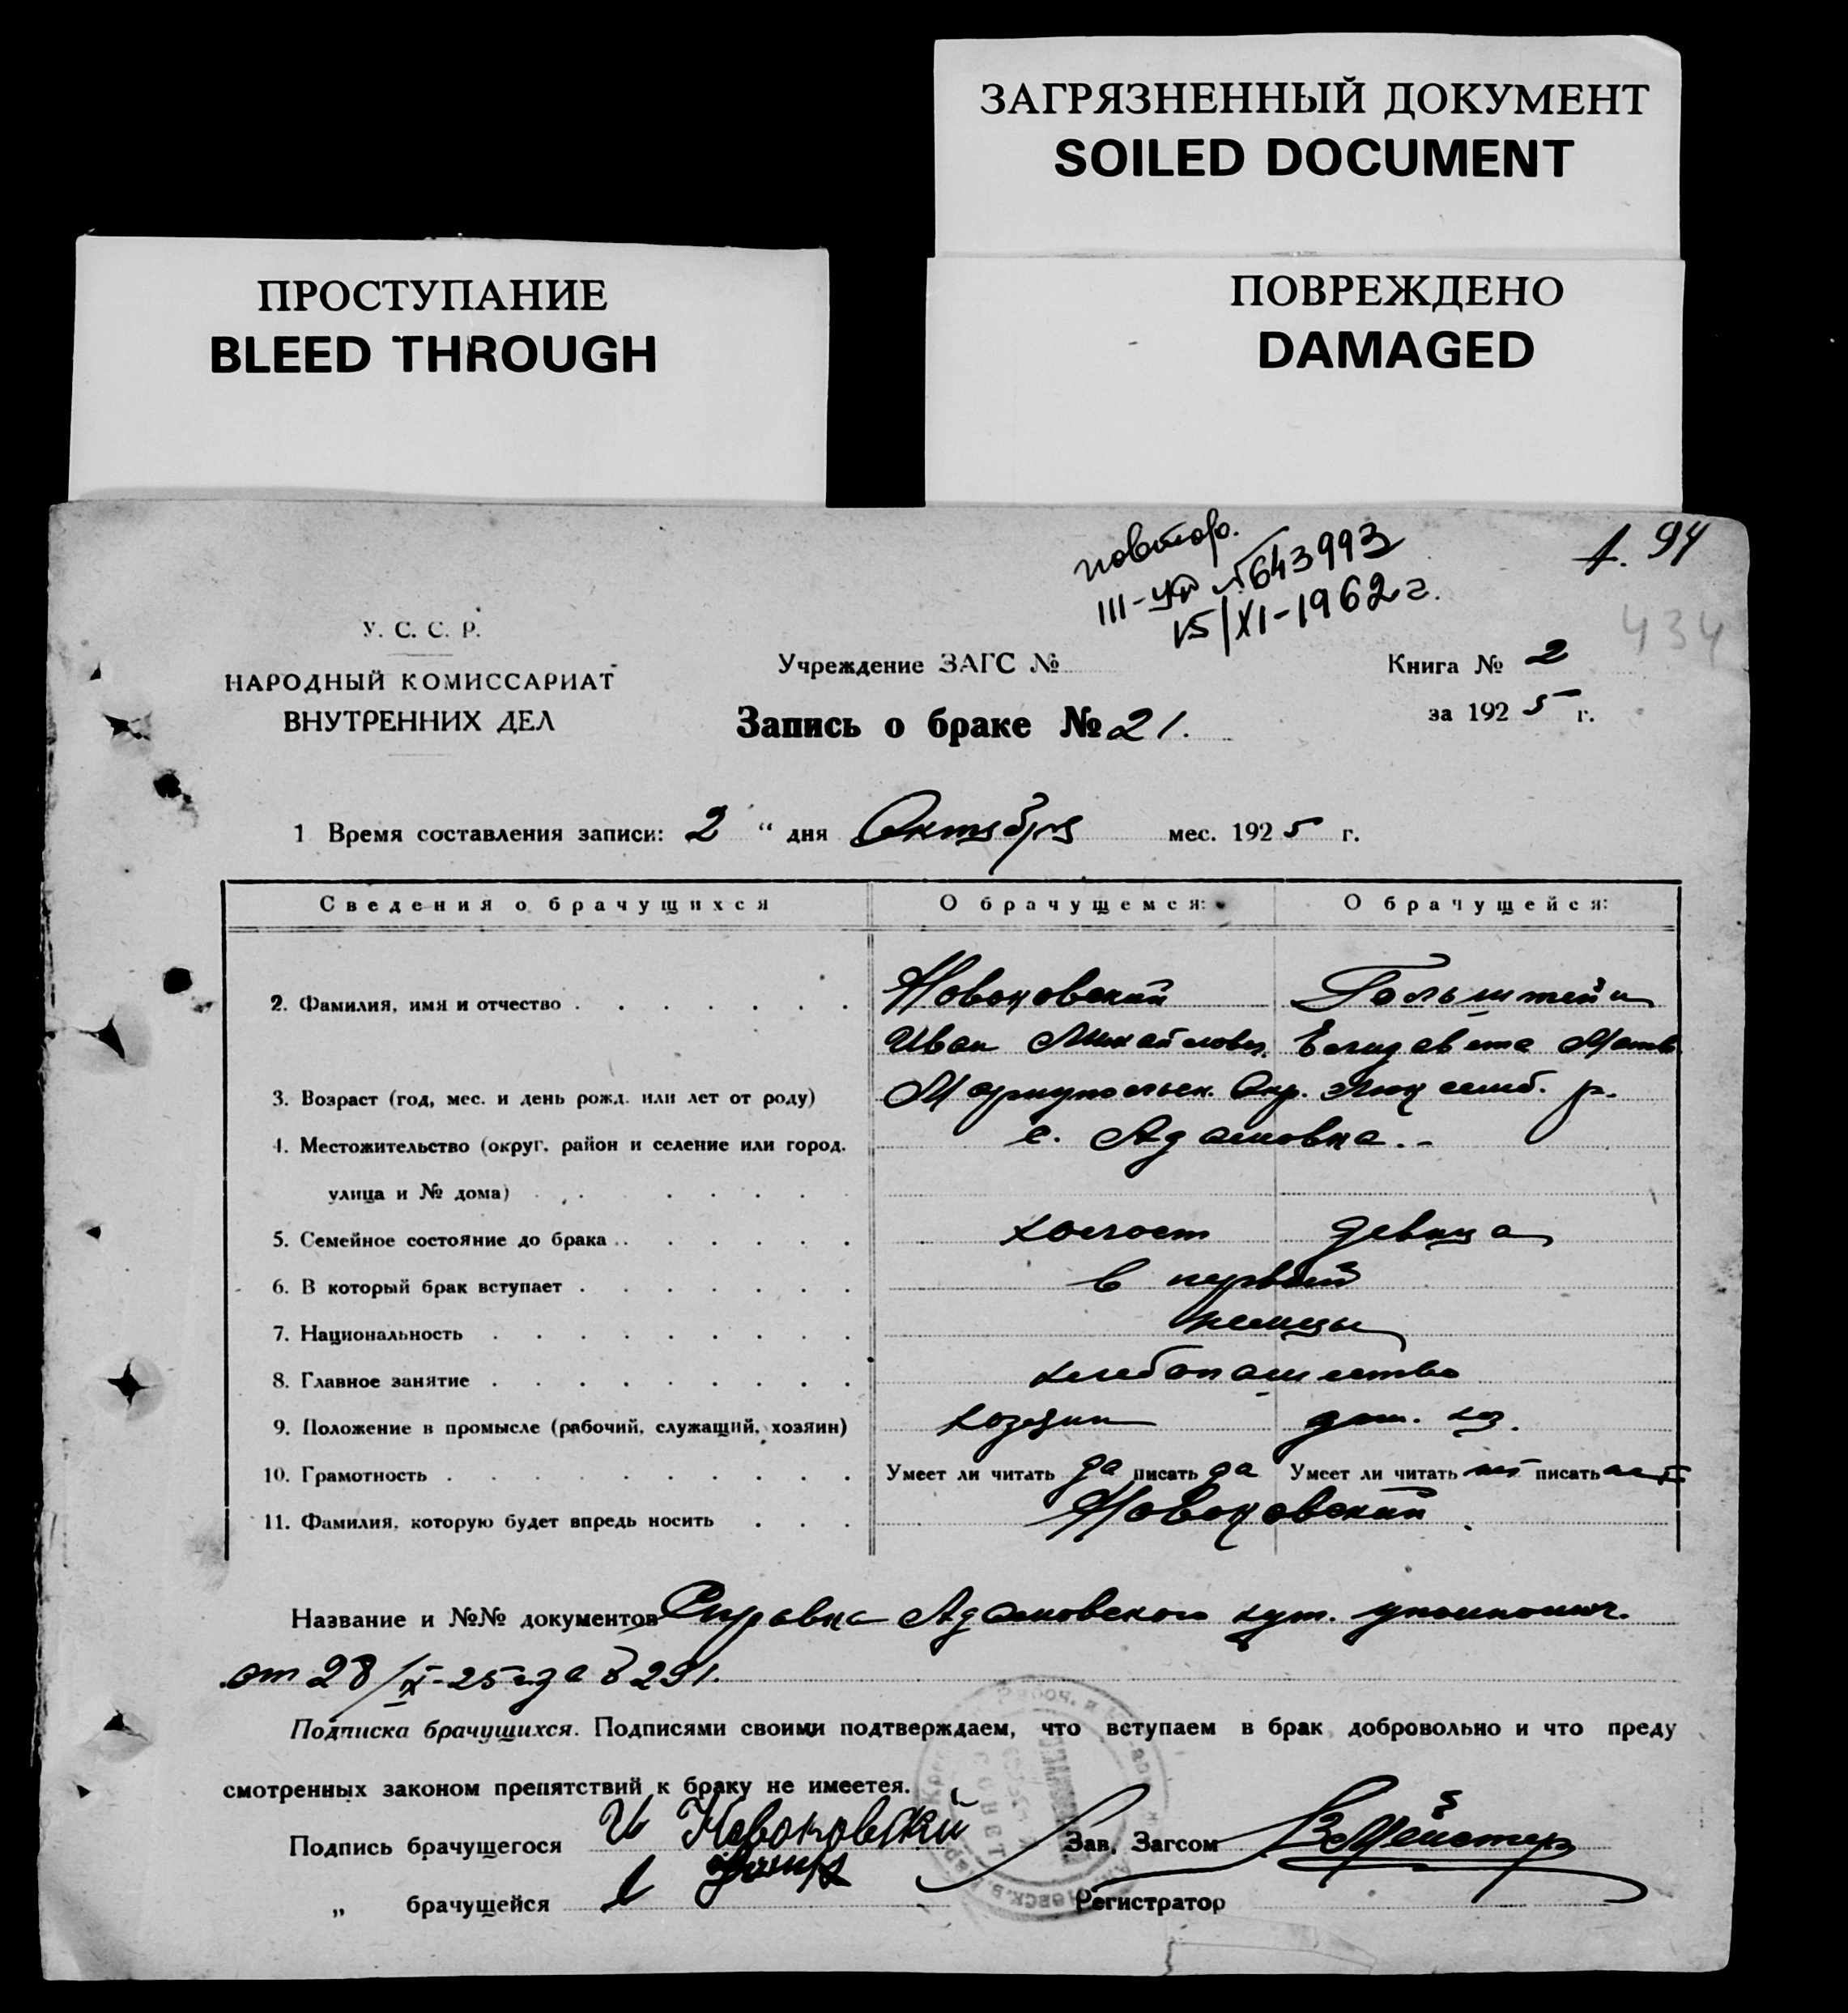 ЗАГРЯЗНЕННЫЙ ДОКУМЕНТ
SOILED DOCUMENT
ПРОСТУПАНИЕ
BLEED THROUGH
ПОВРЕЖДЕНО
DAMAGED
повтор.
III-УР №643993
15/XI-1962 г.
1. 94
434
У. С. С. Р.
НАРОДНЫЙ КОМИССАРИАТ
ВНУТРЕННИХ ДЕЛ
Учреждение ЗАГС №
Запись о браке № 21.
Книга № 2
за 1925 г.
1 Время составления записи: 2 " дня Октября мес. 1925 г.
Сведения о брачущихся О брачущемся: О брачущейся:
2. Фамилия, имя и отчество Новоковский Гольштейн
Иван Михайлович. Елизавета Матв.
3. Возраст (год, мес. и день рожд. или лет от роду) Мариупольск. Окр. Люксемб. р.
4. Местожительство (округ, район и селение или город, с. Адамовка.-
улица и № дома)
5. Семейное состояние до брака холост девица
6. В который брак вступает в первый
7. Национальность немцы
8. Главное занятие хлебопашество
9. Положение в промысле (рабочий, служащий, хозяин) хозяин дом. хоз.
10. Грамотность Умеет ли читать да писать да Умеет ли читать нет писать нет
11. Фамилия, которую будет впредь носить Новоковский.
Название и №№ документов Справка Адамовского уполномоч.
от 28/IX-25 г. за № 291.
Подписка брачущихся. Подписями своими подтверждаем, что вступаем в брак добровольно и что преду
смотренных законом препятствий к браку не имеетея.
Подпись брачущегося И Новоковский Зав. Загсом
„ брачущейся Регистратор